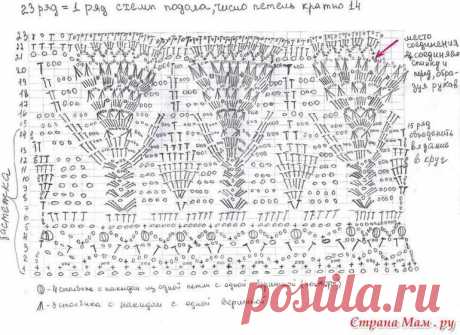 23 ряд = 1 ряд схемы подола, число петель кратно 14
место
соединения
спинку и
перед, обра-
зуя рукав
15 ряд
в круг
застежка
23
22
21
20
19
18
17
16
15
14
13
12
11
10
9
8
7
6
5
4
- 4 столбика с накидом из одной петли с одной вершиной
- 3 столбика с накидом с одной вершиной
postila.ru
Страна Мам.ру